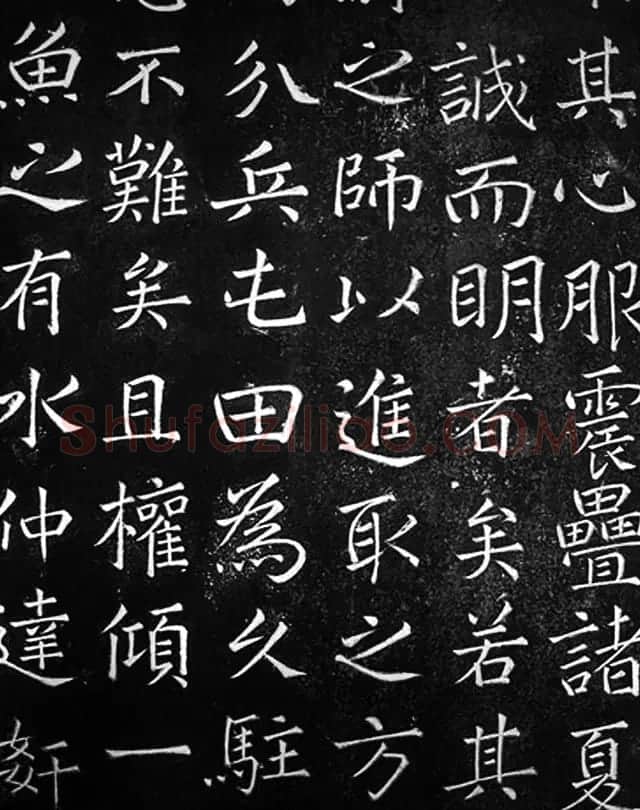 其心服震疊諸夏
誠而明者矣若其
之師以進取之方
分兵屯田為久駐
不難矣且權傾一
魚之有水仲達姧
Shufaziliao.COM